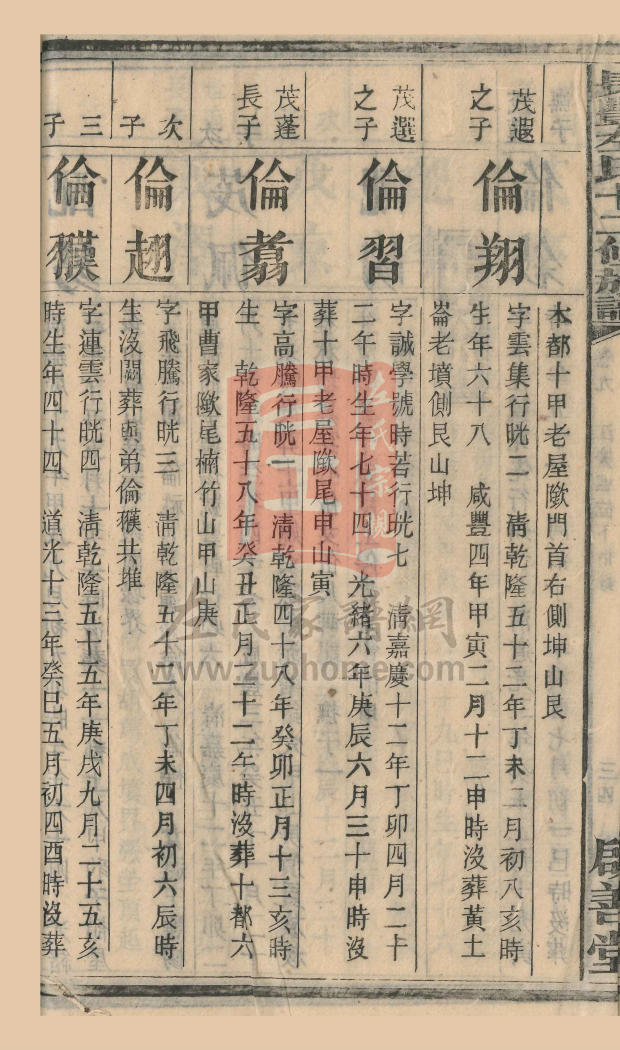 長豐左氏十二修族譜
卷九
三四
啟善堂
本都十甲老屋歐門首右側坤山艮
茂遐之子
倫翔
字雲集行晄二 清乾隆五十二年丁未二月初八亥時
生年六十八 咸豐四年甲寅二月十二申時沒葬黃土
崙老墳側艮山坤
茂選之子
倫習
字誠學號時若行晄七 清嘉慶十二年丁卯四月二十
二午時生年七十四 光緒六年庚辰六月三十申時沒
葬十甲老屋歐尾申山寅
茂蓬長子
倫翥
字高騰行晄一 清乾隆四十八年癸卯正月十三亥時
生 乾隆五十八年癸丑正月二十二午時沒葬十都六
甲曹家歐尾楠竹山甲山庚
次子
倫翅
字飛騰行晄三 清乾隆五十二年丁未四月初六辰時
生沒闕葬與弟倫䝤共堆
三子
倫䝤
字連雲行晄四 清乾隆五十五年庚戌九月二十五亥
時生年四十四 道光十三年癸巳五月初四酉時沒葬
左氏家譜網
www.zuohome.com